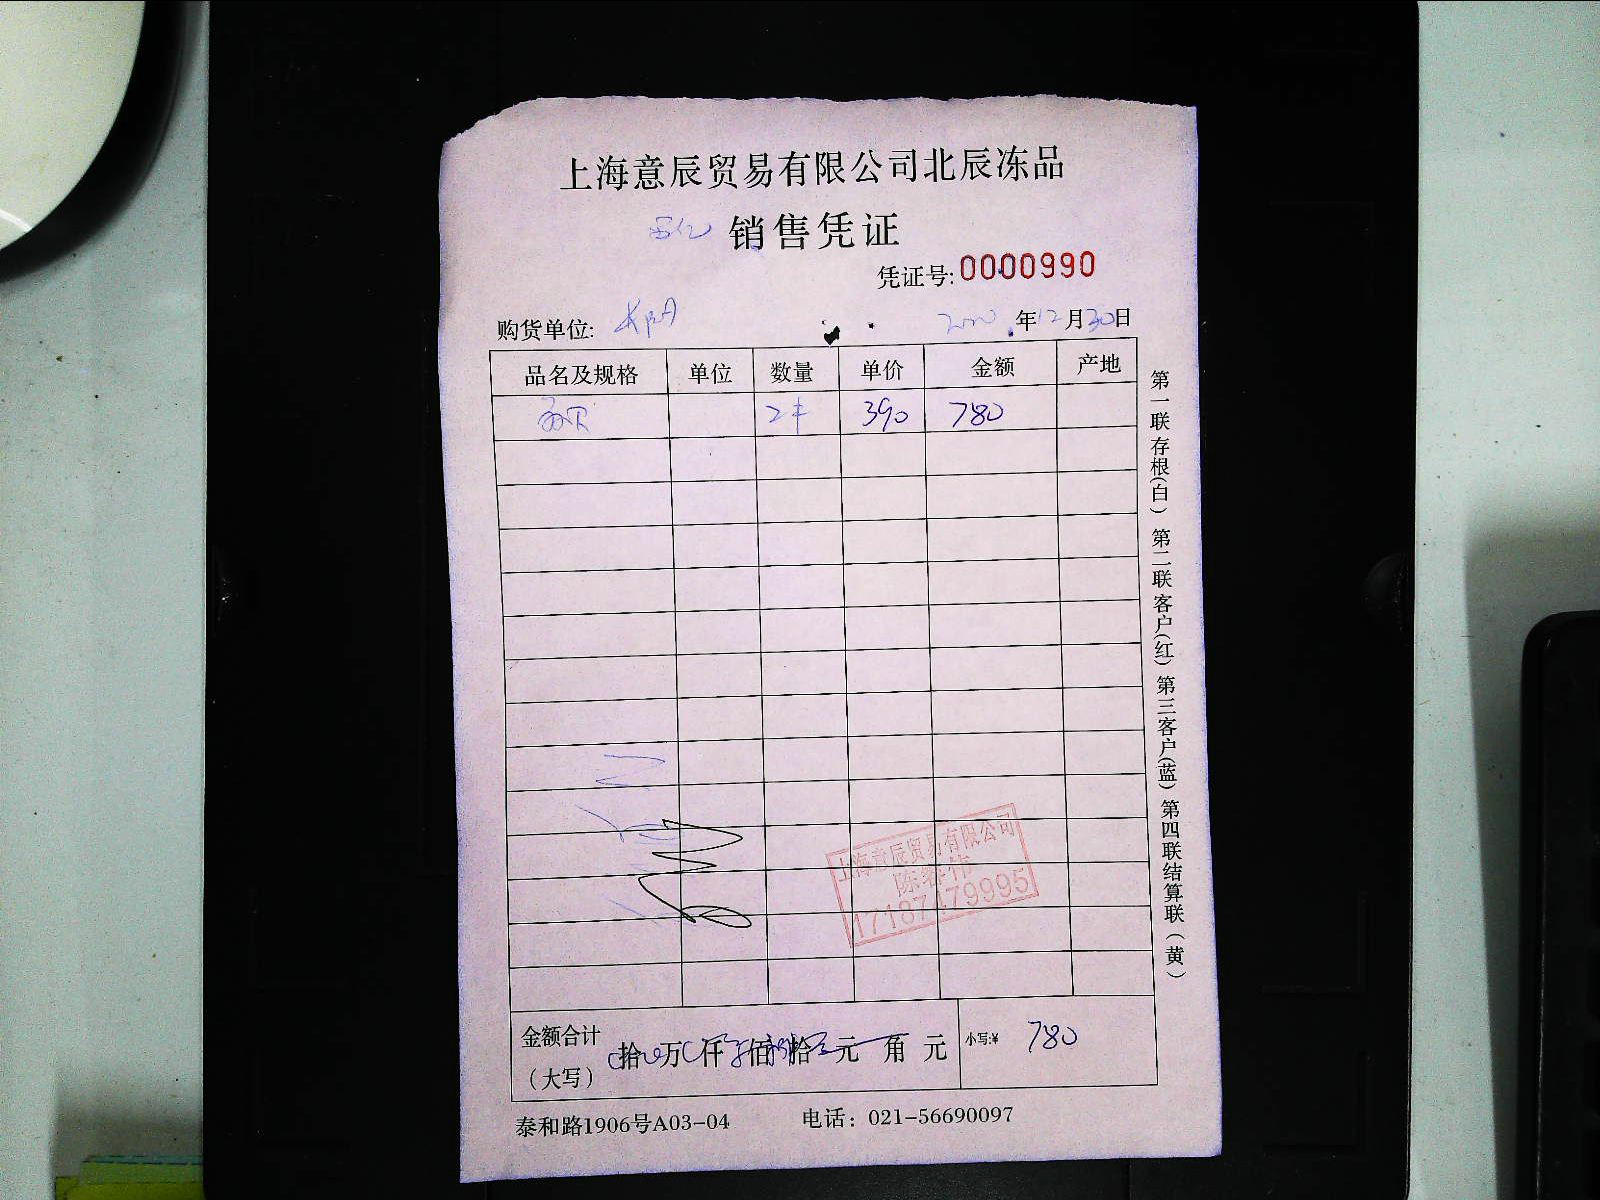 上海意辰贸易有限公司北辰冻品
销售凭证
凭证号:0000990
购货单位:
年12月30日
品名及规格 单位 数量 单价 金额 产地
2 390 780
上海意辰贸易有限公司
17187479995
金额合计
(大写)
拾 万 仟 佰 拾 元 角 元
小写:¥ 780
泰和路1906号A03-04 电话: 021-56690097
第一联存根(白) 第二联客户(红) 第三客户(蓝) 第四联结算联(黄)